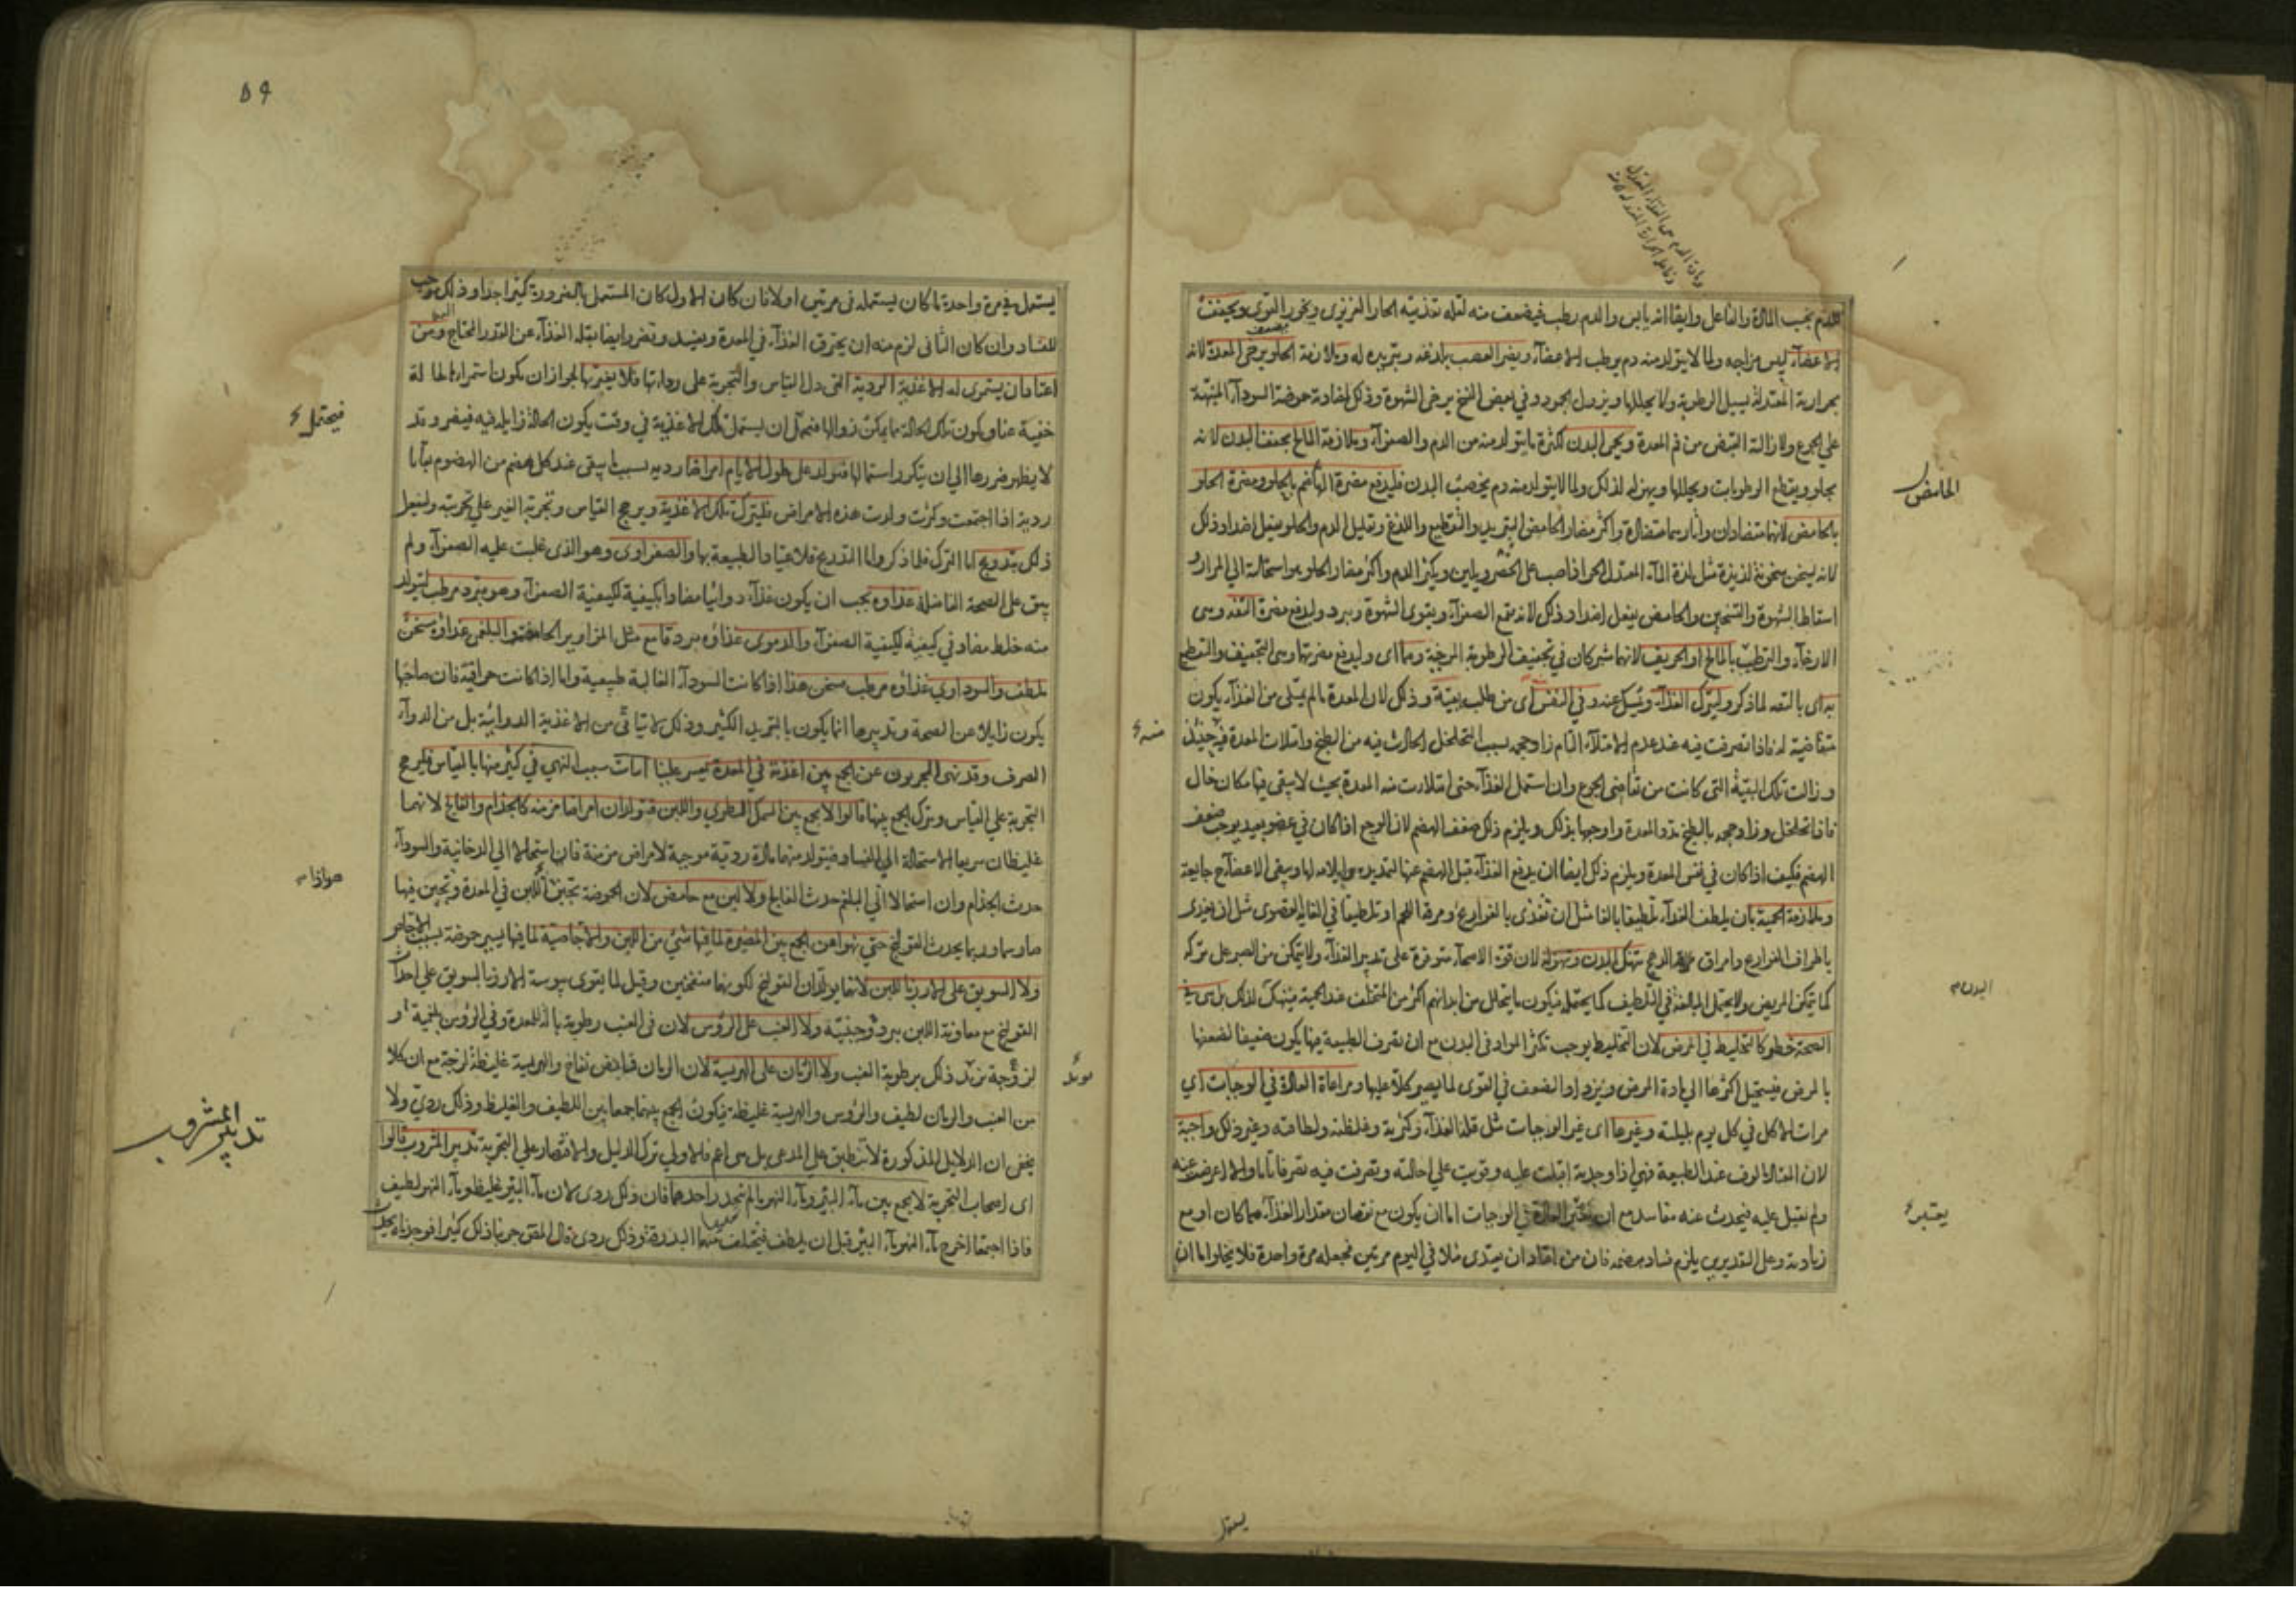 للدم بحسب المادة والفاعل وايضا انه يابس والدم رطب فيضعف منه لقله تغذيته الحار الغريزى ويخور القوى ويجفف
الاعضاء ليبس مزاجه ولما لا يتولد منه دم يرطب الاعضاء ويضر العصب بلذعه وتبريده له وملازمة الحلو يرخى المعدة لانه
بحرارته المعتدلة يسيل الرطوبة ولا يحللها ويزول الجمود وفي بعض النسخ يرخى الشهوة وذلك لمضادته حموضة السوداء المنبهة
على الجوع ولازالة القبض من فم المعدة ويحمى البدن لكثرة ما يتولد منه من الدم والصفراء وملازمة المالح يجفف البدن لانه
يجلو ويقطع الرطوبات ويحللها ويهزله لذلك ولما لا يتولد منه دم يخصب البدن فليدفع مضرة الحامض بالحلو ومضرة الحلو
بالحامض لانهما متضادان واثارهما متضادة واكثر مضار الحامض التبريد والتقطيع واللذع وتقليل الدم والحلو يفعل اضداد ذلك
لانه يسخن سخونة لذيذة مثل لذة الماء المعتدل الحر اذا صب على العضو ويلين ويكثر الدم واكثر مضار الحلو هو استحالته الى المرار و
اسقاط الشهوة والتسخين والحامض يفعل اضداد ذلك لانه يقمع الصفراء ويقوى الشهوة ويبرد وليدفع مضرة التفه وهى
الارخاء والترطيب بالمالح او الحريف لانهما مشتركان في تجفيف الرطوبة المرخية وهما اى وليدفع مضرتهما وهى التجفيف والتقطيع
به اى بالتفه لما ذكر وليترك الغذاء ويمسك عنه وفي النفس اى من طلبه بقية وذلك لان المعدة ما لم يمتلى من الغذاء يكون
متقاضية له فاذا تصرفت فيه عند عدم الامتلاء التام زاد حجمه بسبب التخلخل الحادث فيه من الطبخ وامتلات المعدة فيه حينئذ
وزالت تلك البقية التى كانت من تقاضى الجوع وان استعمل الغذاء حتى امتلات منه المعدة بحيث لا يبقى فيها مكان خال
فاذا تخلخل وزاد حجمه بالطبخ مدد المعدة واوجعها بذلك ويلزم ذلك ضعف الهضم لان الوجع اذا كان في عضو بعيد يوجب ضعف
الهضم فكيف اذا كان في نفس المعدة ويلزم ذلك ايضا ان يدفع الغذاء قبل الهضم عنها لتمديده وايلامه لها ويبقى الاعضاء جايعة
وملازمة الحمية بان يلطف الغذاء تلطيفا بالغا مثل ان تغذى بالفراريج ومرقة اللحم او تلطيفا في الغاية القصوى مثل ان يغذى
باطراف الفراريج وامراق الدجج تنهك البدن وتهزله لان قوة الاصحاء متوفرة على تدبير الغذاء ولا يتمكن من الصبر على تركه
كما يتمكن المريض ولا يحتمل المبالغة في التلطيف كما يحتمله فيكون ما يتحلل من ابدانهم اكثر من المتخلف عند الحمية فينهك لذلك بل هى في
الصحة خطر كالتخليط في المرض لان التخليط يوجب تكثر المواد في البدن مع ان تصرف الطبيعة فيها يكون ضعيفا لضعفها
بالمرض فيستحيل اكثرها الى مادة المرض ويزداد الضعف في القوى لما يصير كلا عليها ومراعاة العادة في الوجبات اى
مرات الاكل في كل يوم بليلته وغيرها اى غير الوجبات مثل قلة الغذاء وكثرته وغلظته ولطافته وغير ذلك واجبة
لان المعتاد مالوف عند الطبيعة فهى اذا وجدته اقبلت عليه وقويت على احالته وتصرفت فيه تصرفا تاما والا اعرضت عنه
ولم تقبل عليه فيحدث عنه مفاسد مع ان تغير العادة في الوجبات اما ان يكون مع نقصان مقدار الغذاء عما كان او مع
زيادته وعلى التقديرين يلزم فساد هضمه فان من اعتاد ان يغتذى مثلا في اليوم مرتين فجعله مرة واحدة فلا يخلو اما ان
الحامض
منه
البدن
يعتبر
يستعمل
٥٩
يستعمل في مرة واحدة ما كان يستعمله في مرتين او لا فان كان الاول كان المستعمل بالضرورة كثيرا جدا وذلك يوجب
الفساد وان كان الثانى لزم منه ان يحترق الغذاء في المعدة ويفسد وتضر وايضا بقلة الغذاء عن القدر المحتاج اليه ومن
اعتاد ان يستمرى له الاغذية الردية التى دل القياس والتجربة على رداءتها فلا يغتر بها لجواز ان يكون استمراءها لحالة
خفية عنا ويكون تلك الحالة مما يمكن زوالها فيحتمل ان يستعمل تلك الاغذية في وقت يكون الحالة زايلة فيه فيضر وقد
لا يظهر ضررها الى ان يتكرر استعمالها فتولد على طول الايام امراضا ردية بسبب ما يبقى عند كل هضم من الهضوم بقايا
ردية اذا اجتمعت وكثرت ولدت هذه الامراض فليترك تلك الاغذية ويرجح القياس وتجربة الغير على تجربته وليفعل
ذلك بتدريج اما الترك فلما ذكر واما التدريج فلاعتياد الطبيعة بها والصفراوى وهو الذى غلبت عليه الصفراء ولم
يبق على الصحة الفاضلة غذاؤه يجب ان يكون غذاء دوائيا مضادا بكيفيته لكيفية الصفراء وهو مبرد مرطب ليتولد
منه خلط مضاد في كيفيته لكيفية الصفراء والدموى غذاؤه مبرد قامع مثل المزاوير الحامضة والبلغمى غذاؤه مسخن
ملطف والسوداوى غذاؤه مرطب مسخن هذا اذا كانت السوداء الغالبة طبيعية واما اذا كانت حراقية فان صاحبها
يكون زايلا عن الصحة وتدبيرها انما يكون بالتبريد الكثير وذلك لا يتاتى من الاغذية الدوائية بل من الدواء
الصرف وقد نهى المجربون عن الجمع بين اغذية في المعدة يعسر علينا اثبات سبب النهى في كثير منها بالقياس فليرجح
التجربة على القياس ويترك الجمع بينها قالوا لا يجمع بين السمك الطرى واللبن فيتولدان امراضا مزمنه كالجذام والفالج لانهما
غليظان سريعا الاستحالة الى الفساد فيتولد منهما مادة ردية موجبة لامراض مزمنة فان استحالا الى الدخانية والسوداء
حدث الجذام وان استحالا الى البلغم حدث الفالج ولا لبن مع حامض لان الحموضة تجبن اللبن في المعدة وتجبن فيها
صار سما وربما يحدث القولنج حتى نهوا عن الجمع بين المضيرة لما فيها شئ من اللبن والاجاصية لما فيها يسير حموضة بسبب الاجاص
ولا السويق على الارز باللبن لانهما يولدان القولنج لكونهما منفخين وقيل لما يقوى يبوسة الارز بالسويق على احداث
القولنج مع معاونة اللبن ببرده وجبنيته ولا العنب على الرؤس لان في العنب رطوبة بالة للمعدة وفي الرؤس بلغمية او
لزوجة تزيد ذلك برطوبة العنب ولا الرمان على الهريسة لان الرمان قابض نفاخ والهريسة غليظة لزجة مع ان كلا
من العنب والرمان لطيف والرؤس والهريسة غليظة فيكون الجمع بينهما جمعا بين اللطيف والغليظ وذلك ردى ولا
يخفى ان الدلايل المذكورة لا تنطبق على المدعى بل هى اعم فالاولى ترك الدليل والاقتصار على التجربة تدبير المشروب قالوا
اى اصحاب التجربة لا يجمع بين ماء البئر وماء النهر ما لم ينحدر احدهما فان ذلك ردى لان ماء البئر غليظ وماء النهر لطيف
فاذا اجتمعا اخرج ماء النهر ماء البئر قبل ان يلطف فيتخلف منهما البدرقة وذلك ردى وقال المص جربنا ذلك كثيرا فوجدناه يحدث
فيحتمل
تدبير المشروب